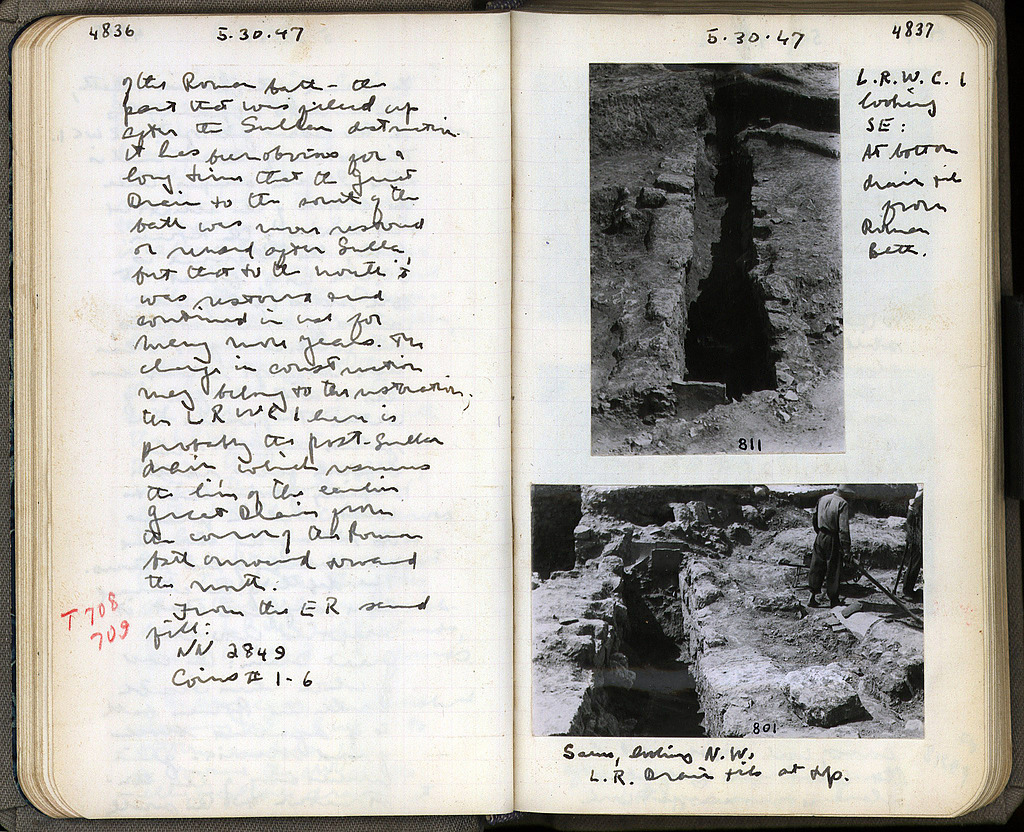 4836
5.30.47
of the Roman bath - the
part that was filled up
after the Sullan destruction.
It has been obvious for a
long time that the Great
Drain to the south of the
bath was never restored
or reused after Sulla
but that to the north it
was restored and
continued in use for
many more years. The
change in construction
may belong to the restoration,
the L R W C 1 here is
probably the post-Sullan
drain which resumes
the line of the earlier
Great Drain from
the corner of the Roman
bath onward toward
the north.
From the E R sand
fill:
T 708
709
NN 2849
Coins # 1-6
5.30.47
4837
L.R.W.C. 1
looking
SE:
At bottom
drain tile
from
Roman
Bath.
811
801
Same, looking N.W.
L.R. Drain tile at top.